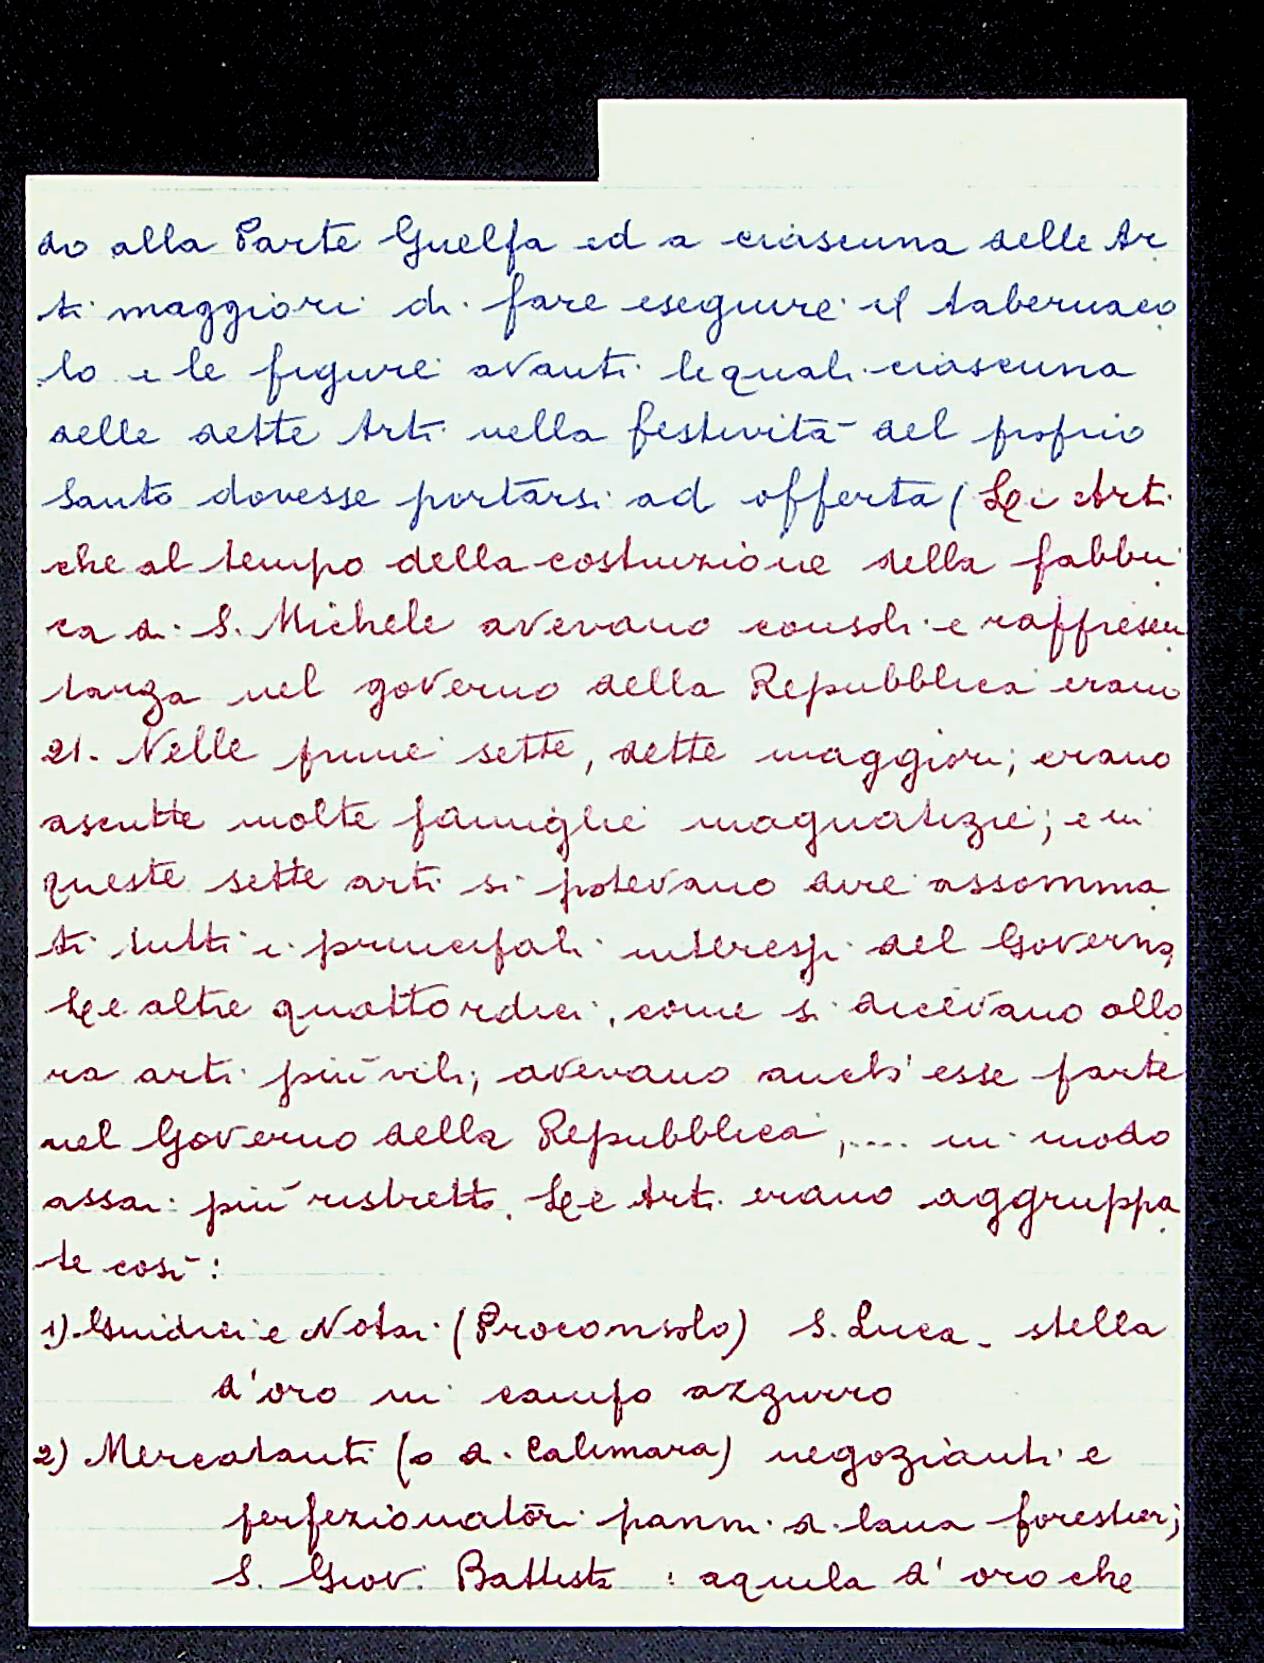 do alla Parte Guelfa ed a ciascuna delle Ar
ti maggiori di fare eseguire il tabernaco
lo e le figure avanti le quali ciascuna
delle dette Arti nella festività del proprio
Santo dovesse portarsi ad offerta (Le Arti
che al tempo della costruzione della fabbri
ca di S. Michele avevano consoli e rappresen
tanza nel governo della Repubblica erano
21. Nelle prime sette, dette maggiori; erano
ascritte molte famiglie magnatizie; e in
queste sette arti si potevano dire assomma
ti tutti i principali interessi del Governo,
Le altre quattordici, come si dicevano allo
ra arti più vili, avevano anch'esse parte
nel Governo della Repubblica,.... in modo
assai più ristretto. Le Arti erano aggruppa
te così:
1) Giudici e Notai (Proconsolo) S. Luca - stella
d'oro in campo azzurro
2) Mercatanti (o di Calimara) negozianti e
perfezionatori panni di lana forestieri;
S. Giov. Battista : aquila d'oro che